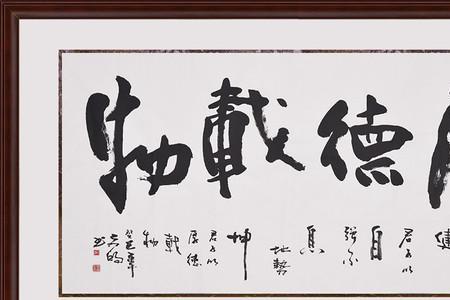 德載物
健
君子以
自
強不
息
地勢
坤
君子以
厚德
載
物